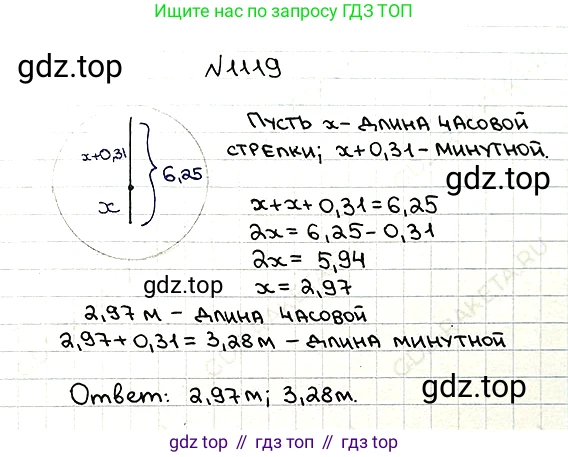 Ищите нас по запросу ГДЗ ТОП
gdz.top
№1119
Пусть x - длина часовой
стрелки; x+0,31 - минутной.
x+0,31
6,25
x
gdz.top
x+x+0,31=6,25
2x=6,25-0,31
2x=5,94
gdz.top
x=2,97
2,97 м - длина часовой
2,97+0,31=3,28м - длина минутной
Ответ: 2,97м; 3,28м.
gdz.top
gdz.top // гдз топ // гдз.топ